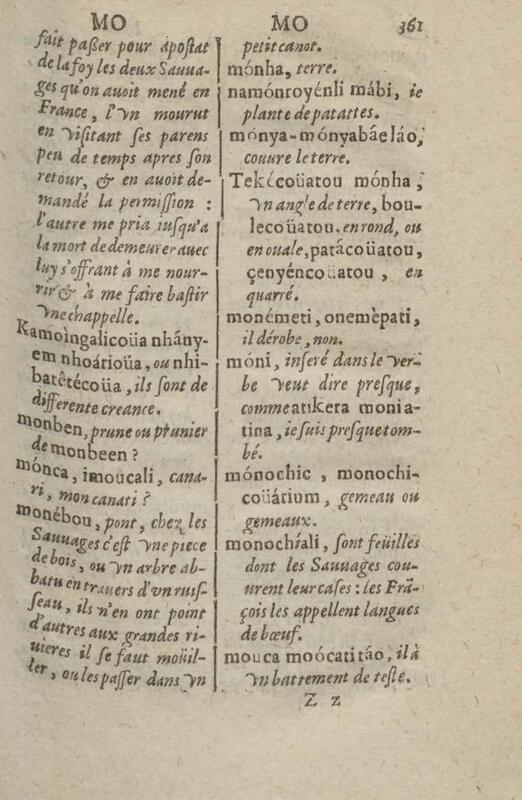 MO
fait paßer pour apostat
de la foy les deux Sauua-
ges qu'on auoit mené en
France, l'vn mourut
en visitant ses parens
peu de temps apres son
retour, & en auoit de-
mandé la permission :
l'autre me pria iusqu'a
la mort de demeurer auec
luy s'offrant à me nour-
rir & à me faire bastir
vne chappelle.
Kamoìngalicoüa nhány-
em nhoárioüa, ou nhi-
batêtécoüa, ils sont de
differente creance.
monben, prune ou prunier
de monbeen ?
mónca, imoucali, cana-
ri, mon canari ?
monébou, pont, chez les
Sauuages c'est vne piece
de bois, ou vn arbre ab-
batu en trauers d'vn ruis-
seau, ils n'en ont point
d'autres aux grandes ri-
uieres il se faut moüil-
ler, ou les passer dans vn
MO 361
petit canot.
mónha, terre.
namónroyénli mábi, ie
plante de patattes.
mónya-mónyabáe láo,
couure le terre.
Tekécoüatou mónha,
vn angle de terre, bou-
lecoüatou. en rond, ou
en ouale, patácoüatou,
çenyéncoüatou, en
quarré.
monémeti, onemèpati,
il dérobe, non.
móni, inseré dans le ver-
be veut dire presque,
comme atikera monia-
tina, ie suis presque tom-
bé.
mónochic, monochi-
coüárium, gemeau ou
gemeaux.
monochíali, sont feüilles
dont les Sauuages cou-
urent leur cases : les Frã-
çois les appellent langues
de bœuf.
mouca moócati táo, il à
vn battement de teste.
Z z